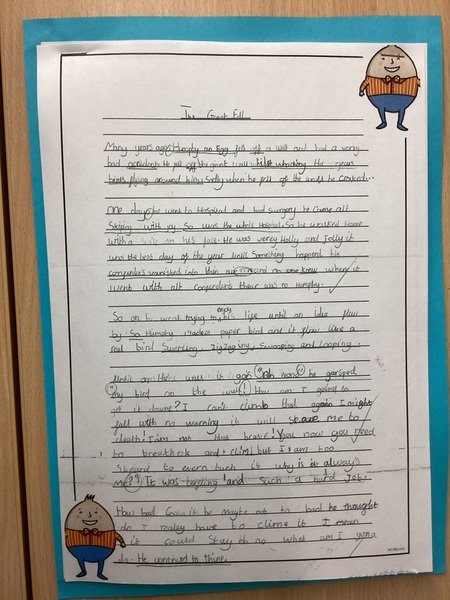 The Great Fall
Many years ago, Humpty an Egg fell off a wall and had a very
bad accident. He fell off the giant wall whilst watching the
birds flying around him. Sadly when he fell of the wall he cracked...
One day, he went to Hospital and had surgery he came all
Skiping with joy So was the whole Hospital. So he walked Home
with a on his face. He was verry Holly and Jolly it
was the best day of the year until Something happend his
vanished into thin air and no one knew where it
went with alt there was no Humpty.
So on he went trying his life until an idea flew
enjoy
by. So Humpty maded paper bird and it flew like a
real bird Swerving, zigzaging, Swooping and looping.
Until it "oh nooo" he garsped
"my bird on the wall! How am I going to
get it downe? I can't climb that again I might
fall with no warning it will Scare me to
death! I am not that brave! you now you need
to breath risk and climb but I am too
Sceard to evern tuch it why is it always
me?" It was terefing! and Such a hard Job!
How bad Could it be maybe not to bad he thought
do I realey have to clime it I mean
it could Stay th no what am I gona
do. He contined to think.